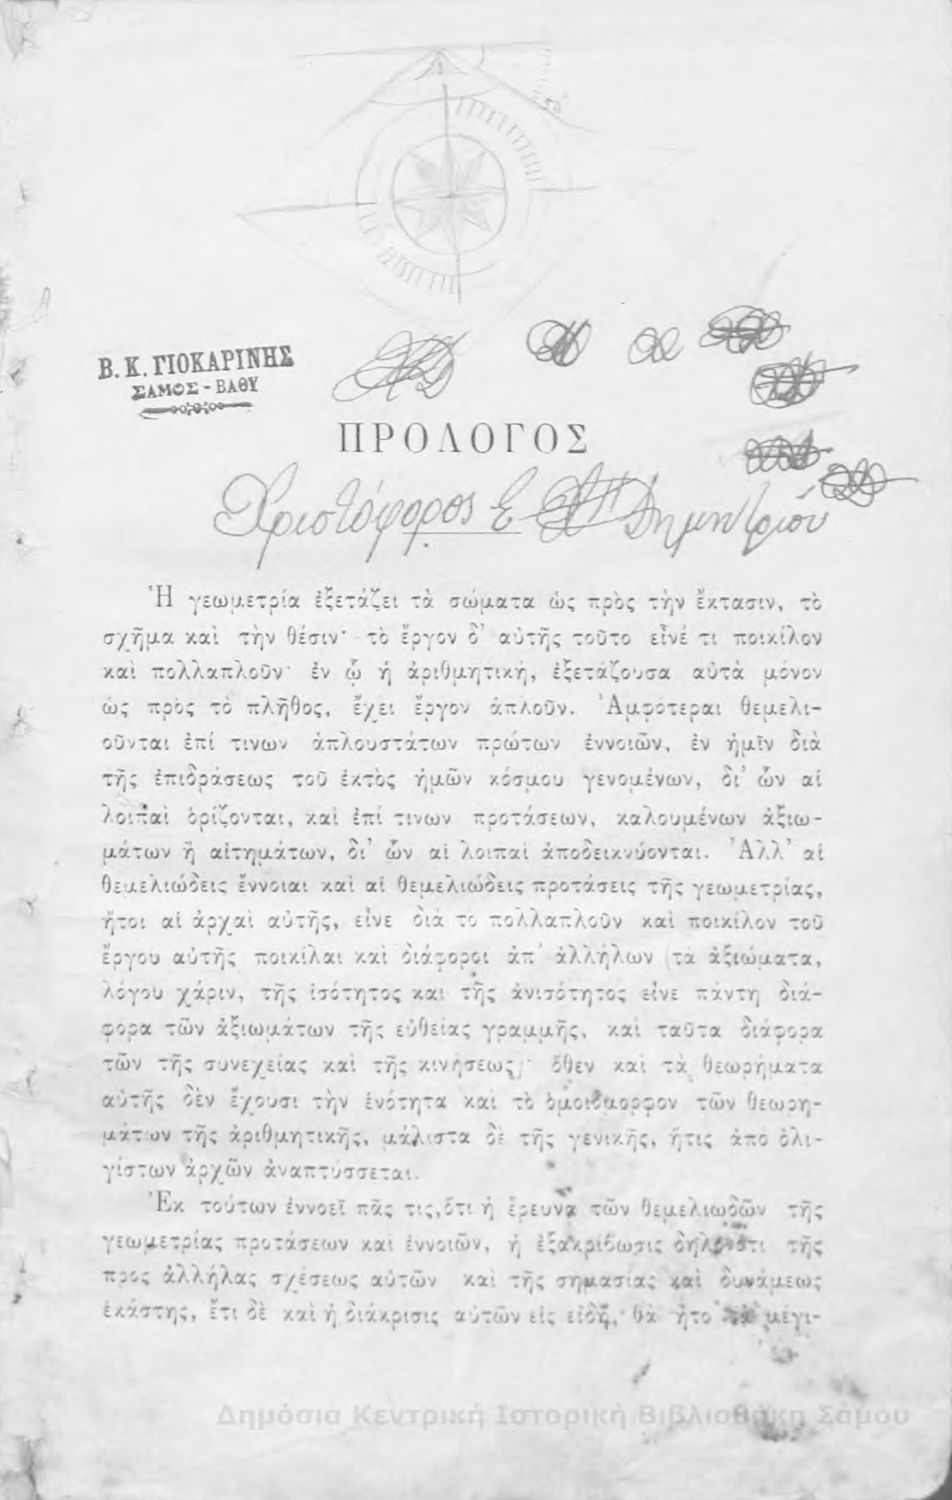 Β. Κ. ΓΙΟΚΑΡΙΝΗΣ
ΣΑΜΟΣ - ΒΑΘΥ
ΠΡΟΛΟΓΟΣ
Χριστόφορος Ε Δημητρίου
Ἡ γεωμετρία ἐξετάζει τὰ σώματα ὡς πρὸς τὴν ἔκτασιν, τὸ
σχῆμα καὶ τὴν θέσιν· τὸ ἔργον δ' αὐτῆς τοῦτο εἶνέ τι ποικίλον
καὶ πολλαπλοῦν· ἐν ᾧ ἡ ἀριθμητική, ἐξετάζουσα αὐτὰ μόνον
ὡς πρὸς τὸ πλῆθος, ἔχει ἔργον ἁπλοῦν. Ἀμφότεραι θεμελι-
οῦνται ἐπί τινων ἁπλουστάτων πρώτων ἐννοιῶν, ἐν ἡμῖν διὰ
τῆς ἐπιδράσεως τοῦ ἐκτὸς ἡμῶν κόσμου γενομένων, δι' ὧν αἱ
λοιπαὶ ὁρίζονται, καὶ ἐπί τινων προτάσεων, καλουμένων ἀξιω-
μάτων ἢ αἰτημάτων, δι' ὧν αἱ λοιπαὶ ἀποδεικνύονται. Ἀλλ' αἱ
θεμελιώδεις ἔννοιαι καὶ αἱ θεμελιώδεις προτάσεις τῆς γεωμετρίας,
ἤτοι αἱ ἀρχαὶ αὐτῆς, εἶνε διὰ τὸ πολλαπλοῦν καὶ ποικίλον τοῦ
ἔργου αὐτῆς ποικίλαι καὶ διάφοροι ἀπ' ἀλλήλων (τὰ ἀξιώματα,
λόγου χάριν, τῆς ἰσότητος καὶ τῆς ἀνισότητος εἶνε πάντη διά-
φορα τῶν ἀξιωμάτων τῆς εὐθείας γραμμῆς, καὶ ταῦτα διάφορα
τῶν τῆς συνεχείας καὶ τῆς κινήσεως)· ὅθεν καὶ τὰ θεωρήματα
αὐτῆς δὲν ἔχουσι τὴν ἑνότητα καὶ τὸ ὁμοιόμορφον τῶν θεωρη-
μάτων τῆς ἀριθμητικῆς, μάλιστα δὲ τῆς γενικῆς, ἥτις ἀπὸ ὀλι-
γίστων ἀρχῶν ἀναπτύσσεται.
Ἐκ τούτων ἐννοεῖ πᾶς τις, ὅτι ἡ ἔρευνα τῶν θεμελιωδῶν τῆς
γεωμετρίας προτάσεων καὶ ἐννοιῶν, ἡ ἐξακρίβωσις δηλαδὴ τῆς
πρὸς ἀλλήλας σχέσεως αὐτῶν καὶ τῆς σημασίας καὶ δυνάμεως
ἑκάστης, ἔτι δὲ καὶ ἡ διάκρισις αὐτῶν εἰς εἴδη, θὰ ἦτο μεγί-
Δημόσια Κεντρική Ιστορική Βιβλιοθήκη Σάμου